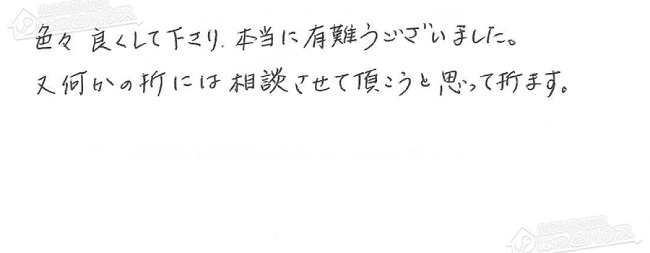 色々良くして下さり、本当に有難うございました。
又何かの折には相談させて頂こうと思って折ます。